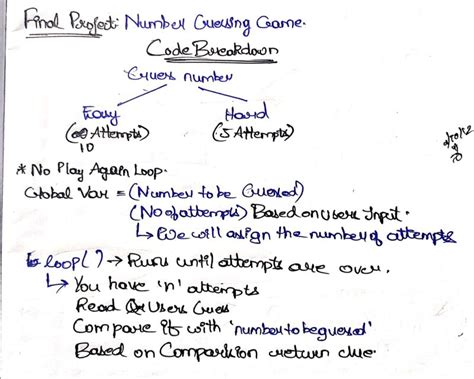 Final Project: Number Guessing Game.
Code Breakdown
Guess number
Easy Hard
(10 Attempts) (5 Attempts)
* No Play Again Loop.
Global Var = (Number to be Guessed)
(No of attempts) Based on users Input.
↳ We will assign the number of attempts
↳ loop() → Runs until attempts are over.
↳ You have 'n' attempts
Read Users Guess
Compare it with 'number to be guessed'
Based on Comparision return clue.